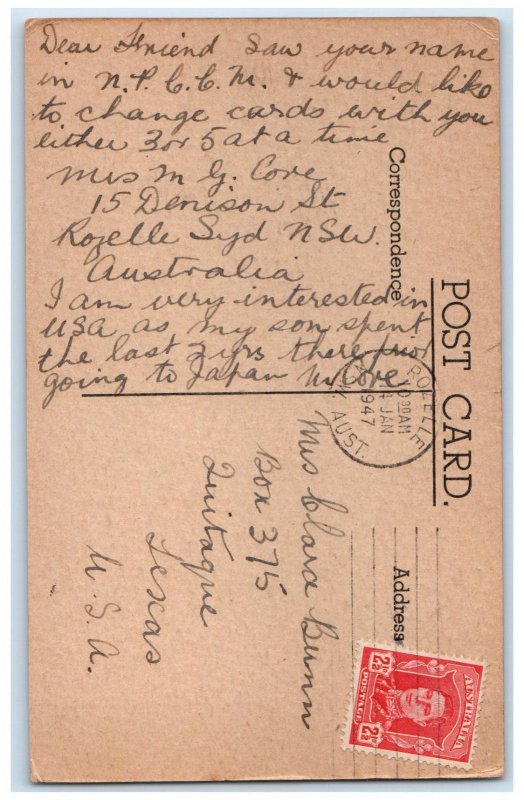 Dear Friend Saw your name
in N.P.C.C.M. & would like
to change cards with you
either 3 or 5 at a time
Mrs M G. Cove
15 Denison St
Rozelle Syd NSW.
Australia
I am very interested in
USA as my son spent
the last 2 yrs there prior
going to Japan M Cove
POST CARD.
Correspondence
Address
ROZELLE
10 30AM
4 JAN
1947
AUST.
Mrs Clara Bunn
Box 375
Quitaque
Texas
U.S.A.
AUSTRALIA
2½D
2½D
POSTAGE